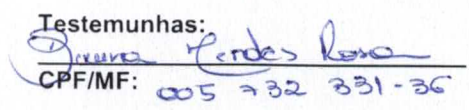 Testemunhas:
Mendes Rosa
CPF/MF: 005 732 331-36